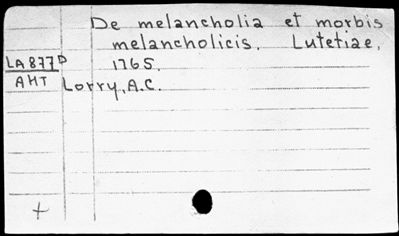 De melancholia et morbis
melancholicis. Lutetiae,
LA877D 1765.
AHT Lorry, A.C.
+